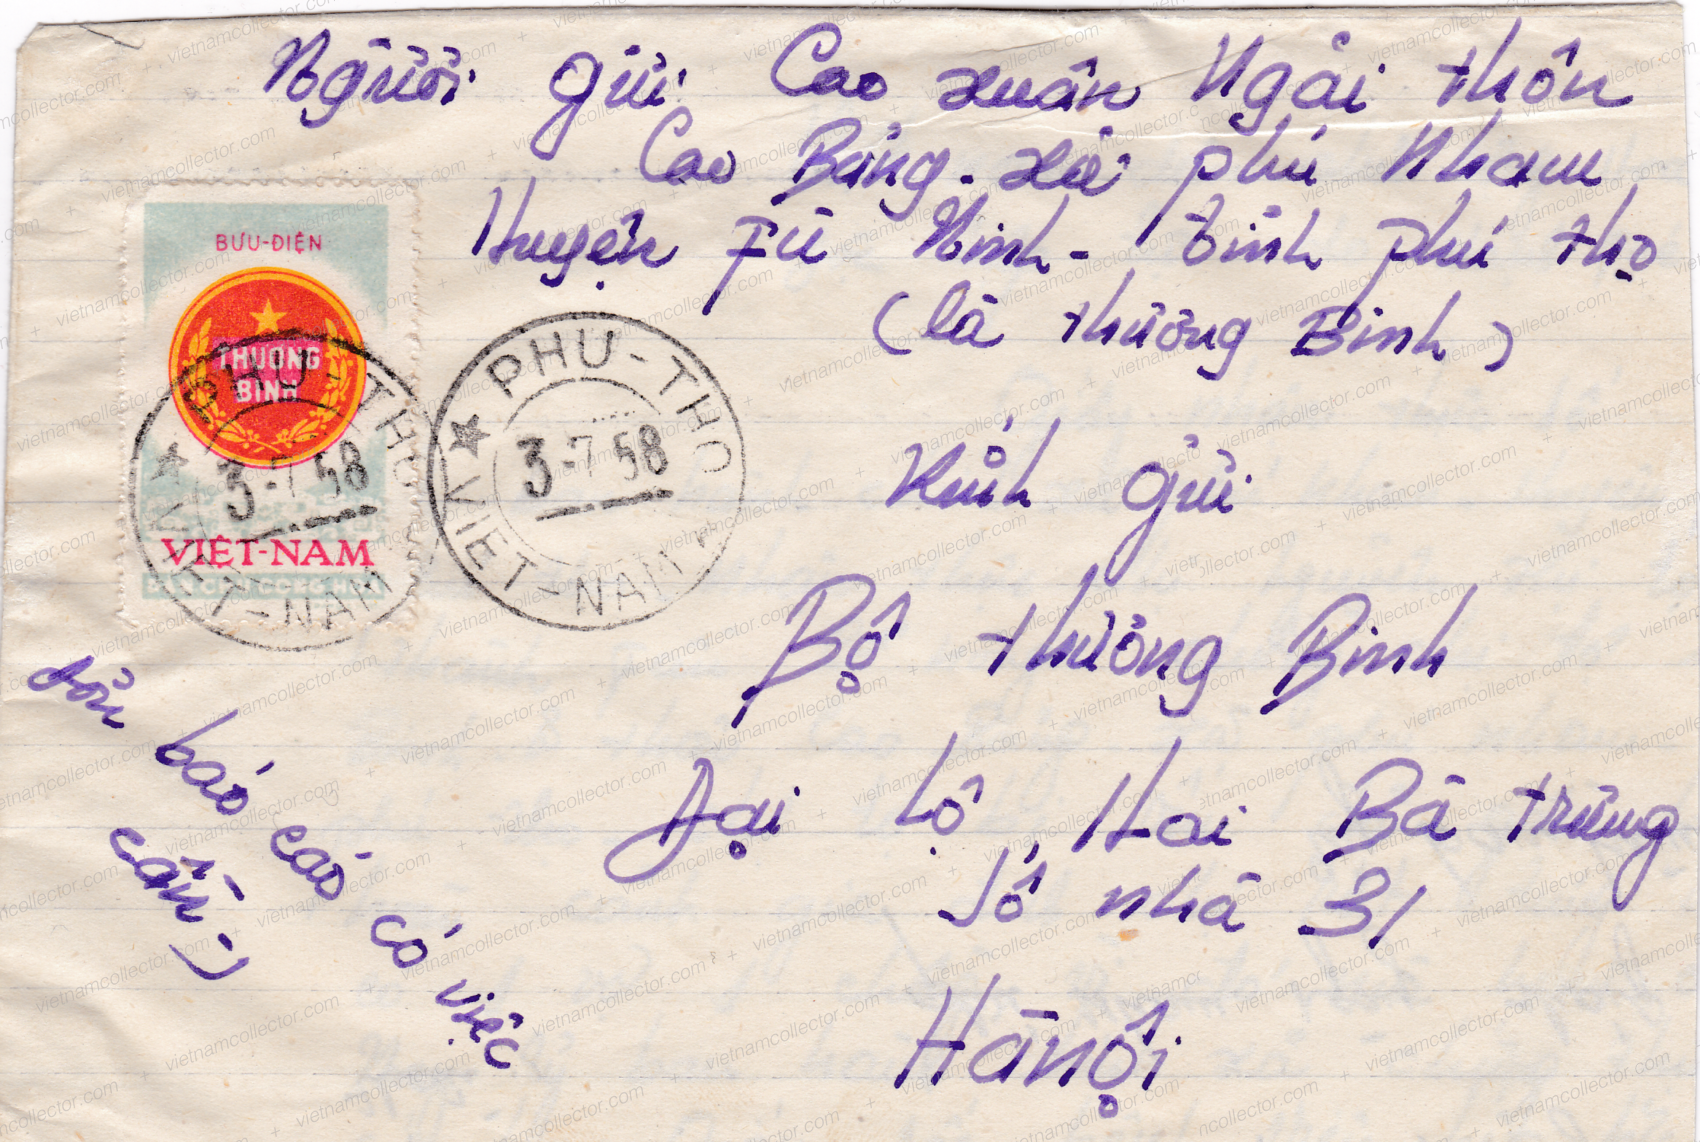 Người gửi Cao Xuân Ngải thôn
Cao Bảng. Xã phú Nham
Huyện Fù Ninh - tỉnh phú thọ
(là thương Binh)
Kính gửi
Bộ thương Binh
Đại Lộ Hai Bà trưng
Số nhà 31
Hà nội
đơn báo cáo có việc
cần -)
BƯU-ĐIỆN
THƯƠNG
BINH
VIỆT-NAM
DÂN CHỦ CỘNG HÒA
PHU-THO
3-7 58
VIET-NAM
PHU-THO
3-7 58
VIET-NAM
vietnamcollector.com